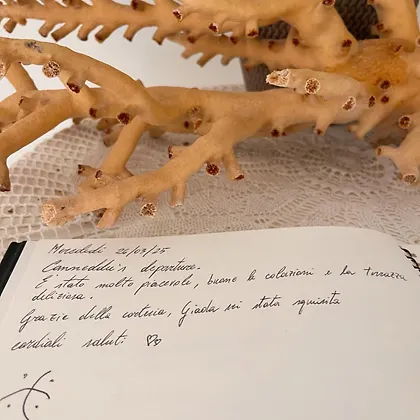 Mercoledì 26/03/25
Canneddu's departure.
E' stato molto piacevole, buone le colazioni e la terrazza
deliziosa.
Grazie della cortesia, Giada sei stata squisita
cordiali saluti ♡♡